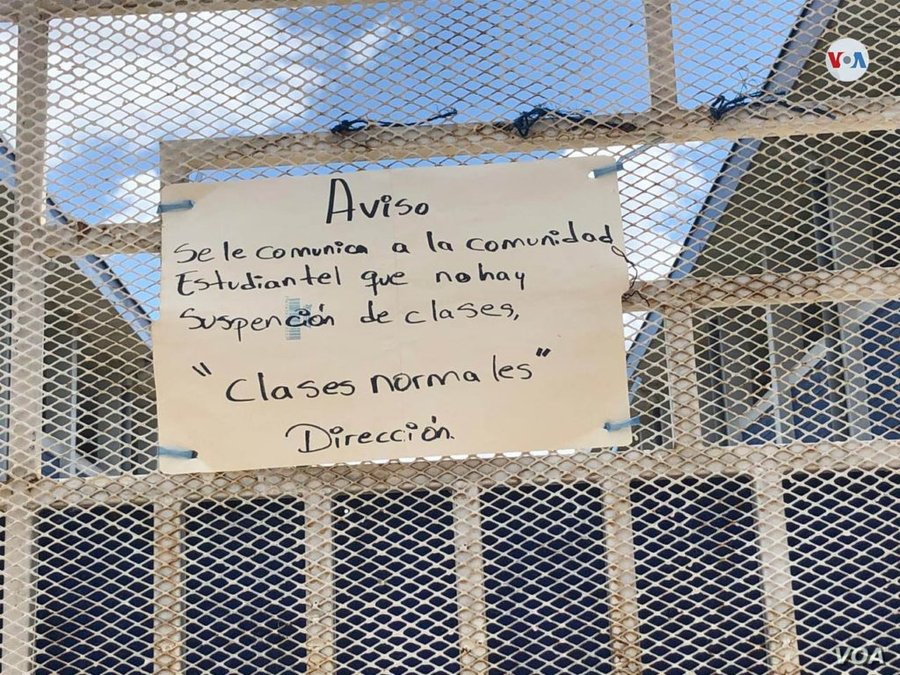 VOA
Aviso
Se le comunica a la comunidad
Estudiantel que no hay
Suspención de clases,
"Clases normales"
Dirección.
VOA